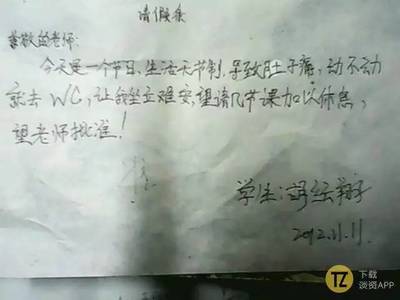 请假条
尊敬的老师:
今天是一个节日,生活无节制,导致肚子痛,动不动
就去WC,让我坐立难安,望请几节课加以休息,
望老师批准!
学生:胡经翔
2012.11.11.
TZ
下载
谈资APP